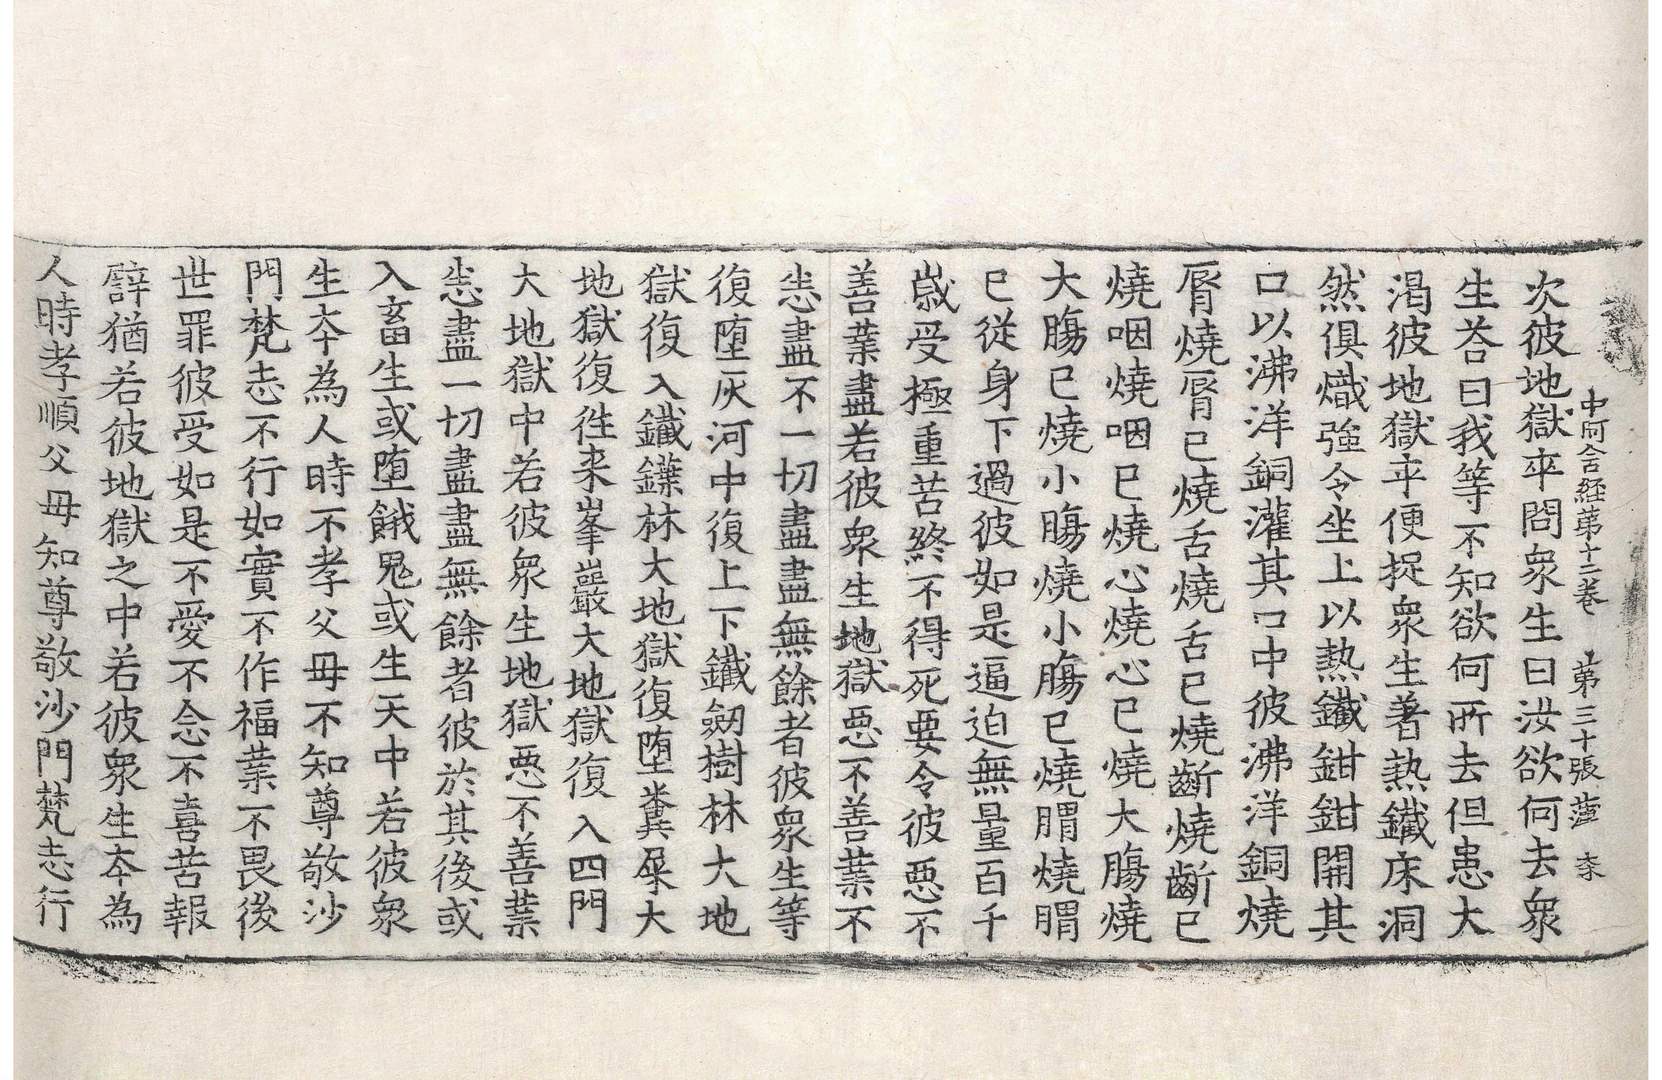 中阿含経苐十二卷 苐三十張 㵢 夲
次彼地獄卒問衆生曰汝欲何去衆
生荅曰我等不知欲何所去但患大
渇彼地獄卒便捉衆生著熱鐵床洞
然俱熾強令坐上以熱鐵鉗鉗開其
口以沸洋銅灌其口中彼沸洋銅燒
脣燒脣已燒舌燒舌已燒齗燒齗已
燒咽燒咽已燒心燒心已燒大膓燒
大膓已燒小膓燒小膓已燒胃燒胃
已從身下過彼如是逼迫無量百千
嵗受極重苦終不得死要令彼惡不
善業盡若彼衆生地獄惡不善業不
悉盡不一切盡盡無餘者彼衆生等
復堕灰河中復上下鐵劒樹林大地
獄復入鐵鍱林大地獄復堕糞屎大
地獄復徃来峯巖大地獄復入四門
大地獄中若彼衆生地獄惡不善業
悉盡一切盡盡無餘者彼於其後或
入畜生或堕餓鬼或生天中若彼衆
生夲為人時不孝父母不知尊敬沙
門梵志不行如實不作福業不畏後
世罪彼受如是不愛不念不喜苦報
譬猶若彼地獄之中若彼衆生夲為
人時孝順父母知尊敬沙門梵志行